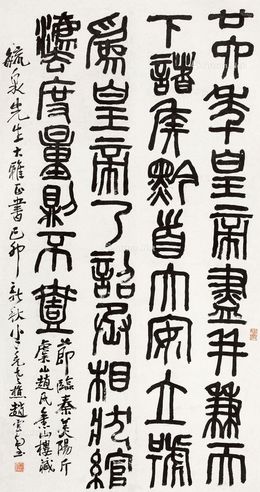 廿六年皇帝盡并兼天
下諸侯黔首大安立號
為皇帝乃詔丞相狀綰
灋度量則不壹
節臨秦美陽斤
虞山趙氏山樓藏
毓泉先生大雅正書己卯新秋老樵趙雲壑